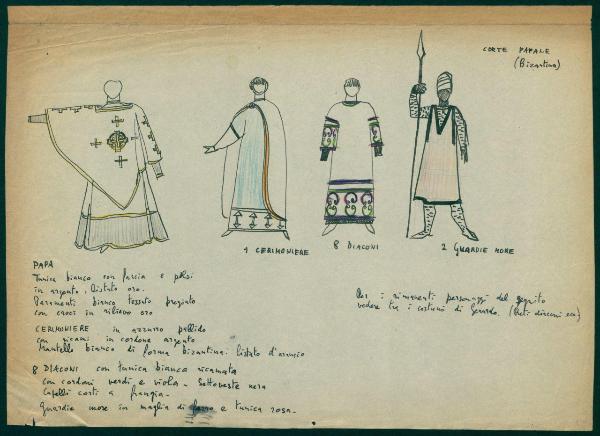 CORTE PAPALE
(Bizantina)
1 CERIMONIERE
8 DIACONI
2 GUARDIE MORE
PAPA
Tunica bianca con fascia e polsi
in argento, listato oro.
Paramenti bianco tessuto pregiato
con croci in rilievo oro
CERIMONIERE in azzurro pallido
con ricami in cordone argento
Mantello bianco di forma bizantina. listato d'arancio
8 DIACONI con tunica bianca ricamata
con cordoni verdi e viola - Sottoveste nera
Capelli corti a frangia.
Guardie more in maglia di e tunica rosa.
Per i rimanenti personaggi del seguito
vedere tra i costumi di (Preti diaconi ecc)